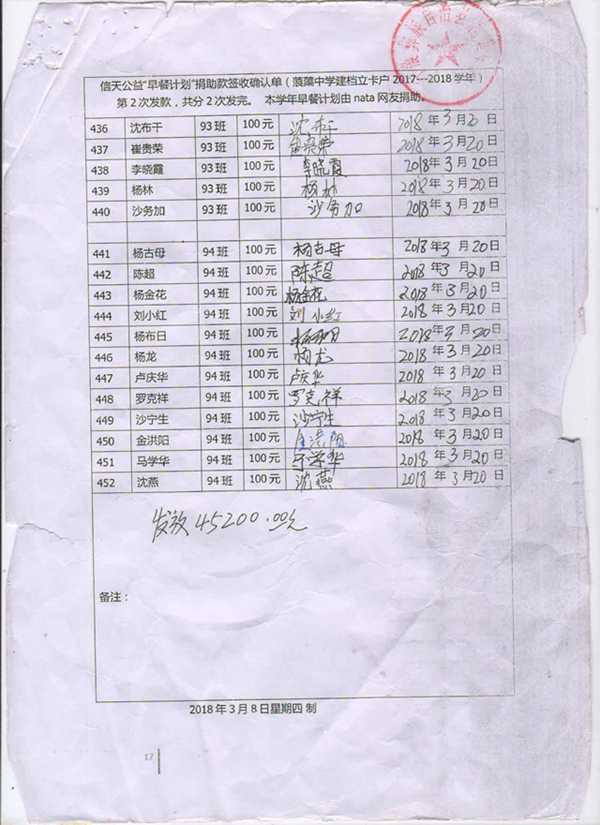 信天公益“早餐计划”捐助款签收确认单（蒗蕖中学建档立卡户 2017---2018 学年）
第 2 次发款，共分 2 次发完。 本学年早餐计划由 nata 网友捐助。
436 沈布干 93 班 100 元 沈布干 2018 年 3 月 20 日
437 崔贵荣 93 班 100 元 崔贵荣 2018 年 3 月 20 日
438 李晓霞 93 班 100 元 李晓霞 2018 年 3 月 20 日
439 杨林 93 班 100 元 杨林 2018 年 3 月 20 日
440 沙务加 93 班 100 元 沙务加 2018 年 3 月 20 日
441 杨古母 94 班 100 元 杨古母 2018 年 3 月 20 日
442 陈超 94 班 100 元 陈超 2018 年 3 月 20 日
443 杨金花 94 班 100 元 杨金花 2018 年 3 月 20 日
444 刘小红 94 班 100 元 刘小红 2018 年 3 月 20 日
445 杨布日 94 班 100 元 杨布日 2018 年 3 月 20 日
446 杨龙 94 班 100 元 杨龙 2018 年 3 月 20 日
447 卢庆华 94 班 100 元 卢庆华 2018 年 3 月 20 日
448 罗克祥 94 班 100 元 罗克祥 2018 年 3 月 20 日
449 沙宁生 94 班 100 元 沙宁生 2018 年 3 月 20 日
450 金洪阳 94 班 100 元 金洪阳 2018 年 3 月 20 日
451 马学华 94 班 100 元 马学华 2018 年 3 月 20 日
452 沈燕 94 班 100 元 沈燕 2018 年 3 月 20 日
发放 45200.00元
备注：
2018 年 3 月 8 日星期四 制
17